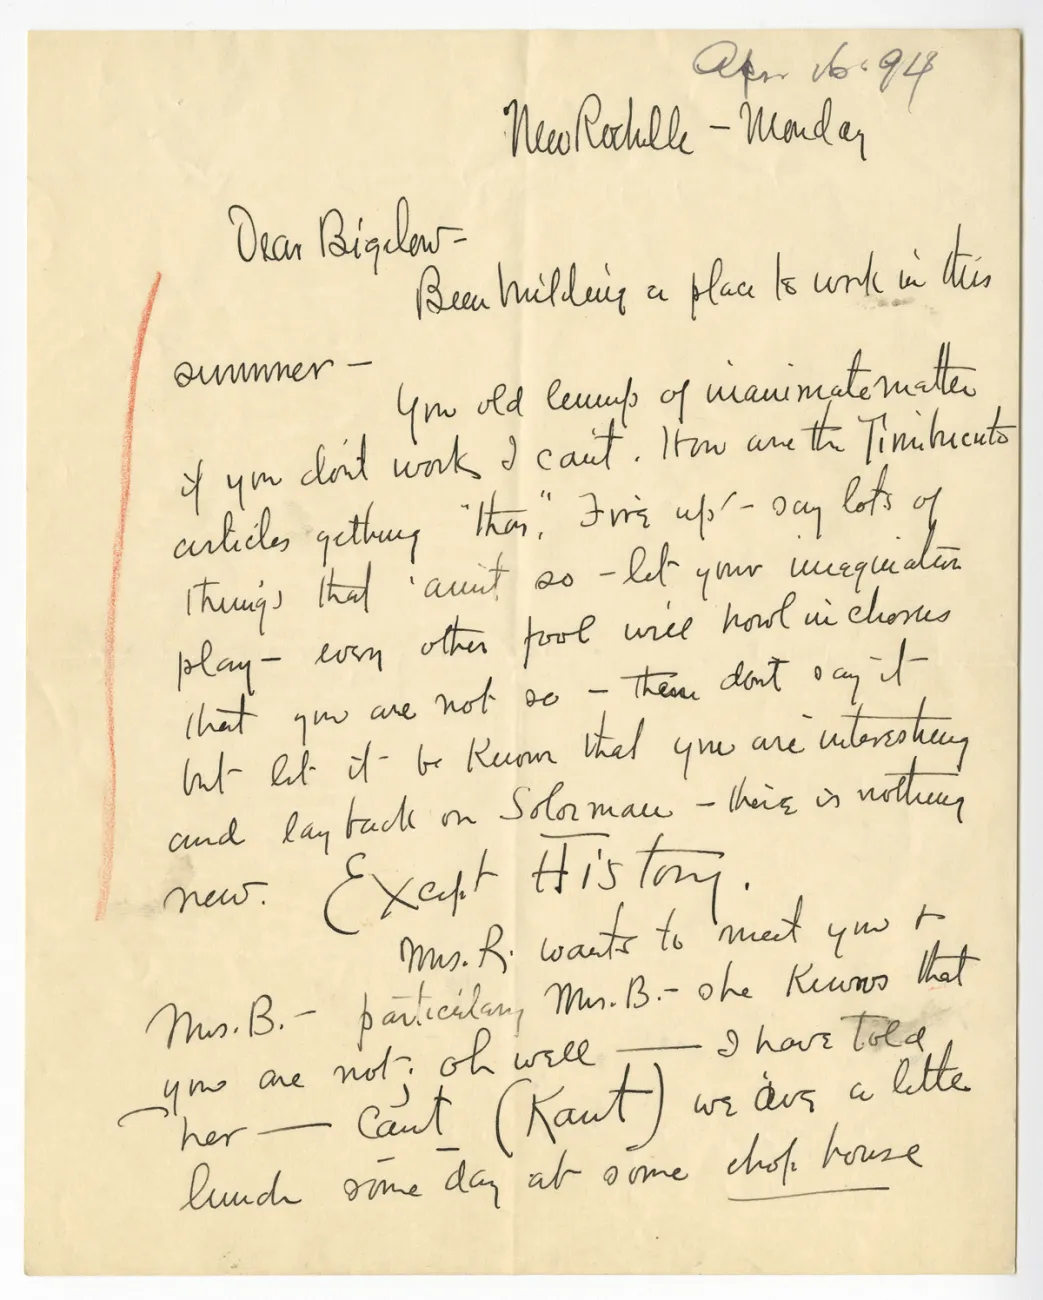 Apr 16. 94
New Rochelle - Monday
Dear Bigelow -
Been building a place to work in this
summer -
You old lump of inanimate matter
if you don't work I can't. How are the Timbucto
articles getting "thar," Fire up - say lots of
things that 'aint so - let your imagination
play - every other fool will howl in chorus
that you are not so - them don't say it
but let it be known that you are interesting
and lay back on Solozman - there is nothing
new. Except HisTory.
Mrs. R. wants to meet you &
Mrs. B. - particulary Mrs. B. - she knows that
you are not; oh well — I have told
her — Can't (Kan't) we ave a little
lunch some day at some chop house